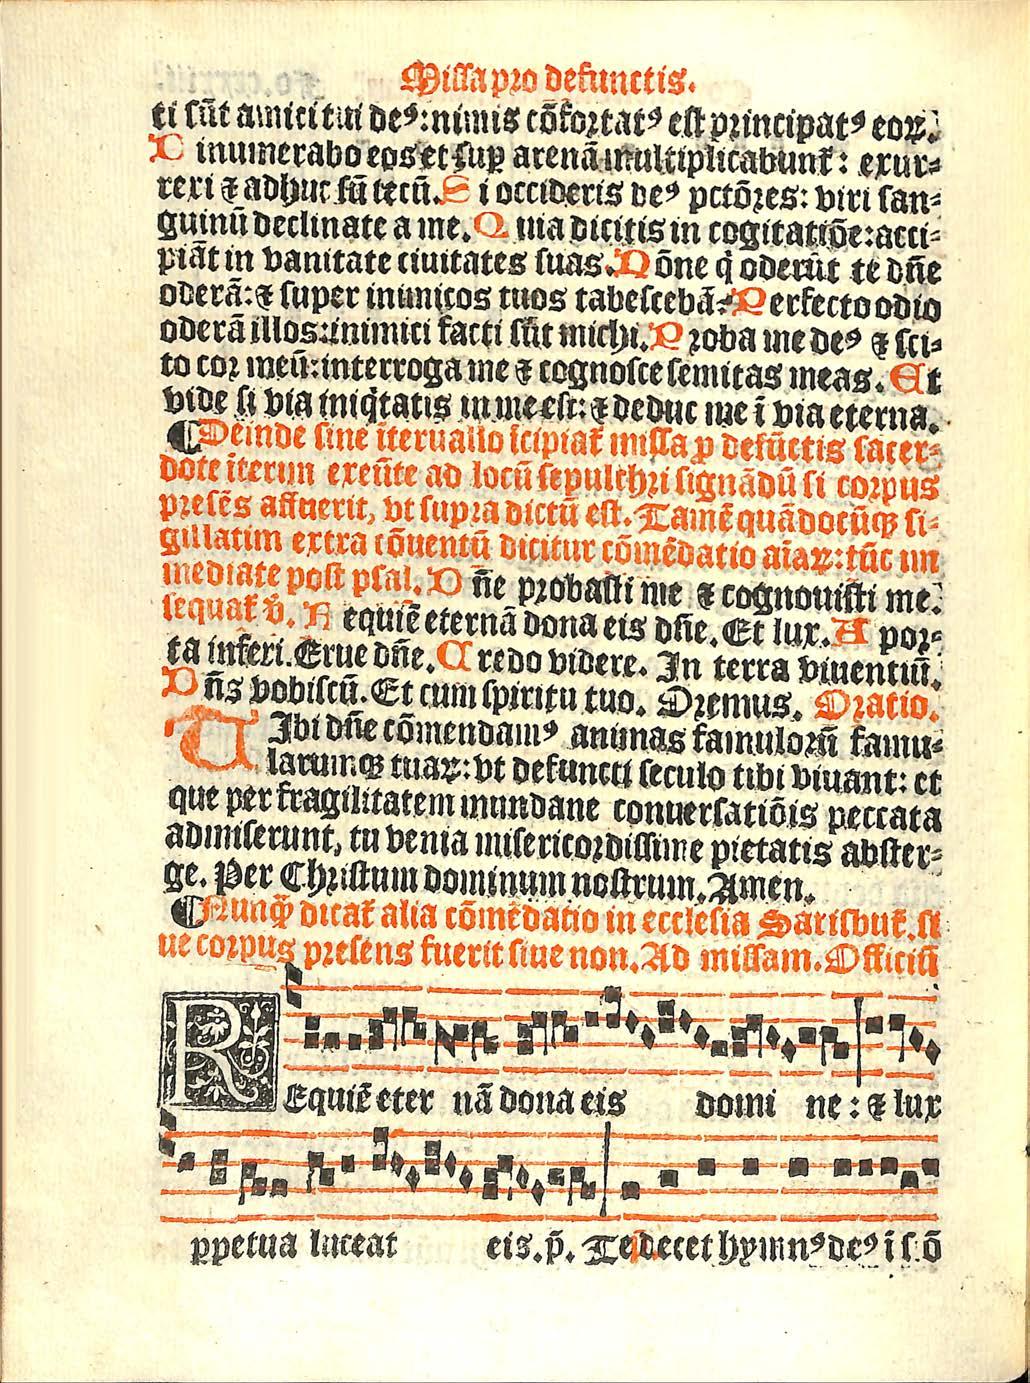 Missa pro defunctis.
ti sūt amici tui deꝰ: nimis cōfortatꝰ est principatꝰ eoꝝ.
D inumerabo eos et suꝑ arenā multiplicabunt̃: exur⸗
rexi ⁊ adhuc sū tecū. S i occideris deꝰ pctōres: viri san⸗
guinū declinate a me. Q uia dicitis in cogitatiōe: acci⸗
piāt in vanitate ciuitates suas. N ōne q̇ oderūt te dñe
oderā: ⁊ super inimicos tuos tabescebā⸗ P erfecto odio
oderā illos: inimici facti sūt michi. P roba me deꝰ ⁊ sci⸗
to cor meū: interroga me ⁊ cognosce semitas meas. Et
vide si via iniq̇tatis in me est: ⁊ deduc me ī via eterna.
¶ Deinde sine īteruallo īcipiat̃ missa ꝓ defūctis sacer⸗
dote īterim exeūte ad locū sepulchri signādū si corpus
presēs affuerit, vt supra dictū est. Tamē quādocūqꝫ si⸗
gillatim extra cōuentū dicitur cōmēdatio aīaꝝ: tūc im
mediate post psal. D ñe probasti me ⁊ cognouisti me.
sequat̃ v̄. R equiē eternā dona eis dñe. Et lux. A por⸗
ta inferi. Erue dñe. C redo videre. In terra viuentiū.
D ñs vobiscū. Et cum spiritu tuo. Oremus. Oratio.
TIbi dñe cōmendamꝰ animas famulorū famu⸗
larumqꝫ tuaꝝ: vt defuncti seculo tibi viuant: et
que per fragilitatem mundane conuersatiōis peccata
admiserunt, tu venia misericordissime pietatis abster⸗
ge. Per Christum dominum nostrum. Amen.
¶ Nunqꝫ̄ dicat̃ alia cōmēdatio in ecclesia Sarisbur̃. si
ue corpus presens fuerit siue non. Ad missam. Officiū
REquiē eter nā dona eis domi ne: ⁊ lux
ꝑpetua luceat eis. p̄. Te decet hymnꝰ deꝰ ī s ō